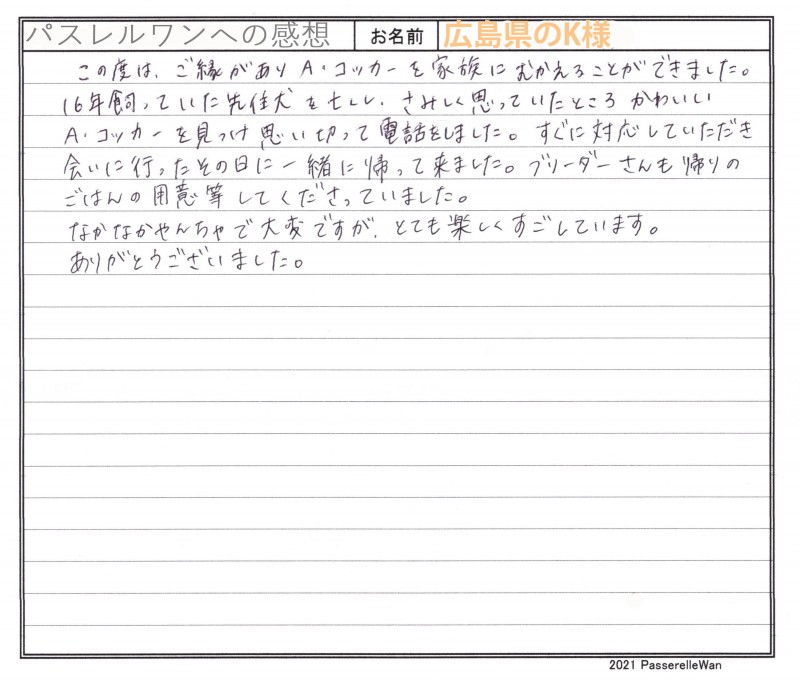 パスレルワンへの感想 お名前 広島県のK様
この度は、ご縁があり A・コッカーを家族にむかえることができました。
16年飼っていた先住犬を亡くし、さみしく思っていたところ かわいい
A・コッカーを見つけ思い切って電話をしました。すぐに対応していただき
会いに行ったその日に一緒に帰って来ました。ブリーダーさんも帰りの
ごはんの用意等してくださっていました。
なかなかやんちゃで大変ですが、とても楽しくすごしています。
ありがとうございました。
2021 PasserelleWan